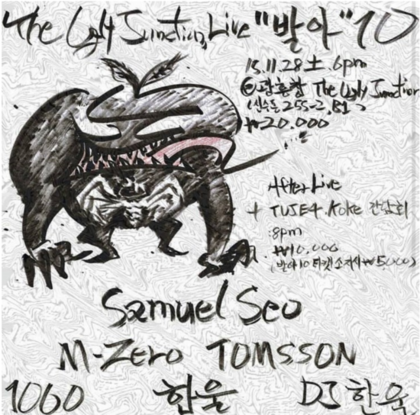 The Ugly Junction Live "발아" 10
15.11.28 土. 6pm
@ The Ugly Junction
255-2, B1
₩20.000
After Live
+ TUSE4. Koke 간담회
:8pm
₩10.000
(발아10 티켓 소지자 ₩5000)
Samuel Seo
M-Zero TOMSSON
1060 한울 DJ 한울